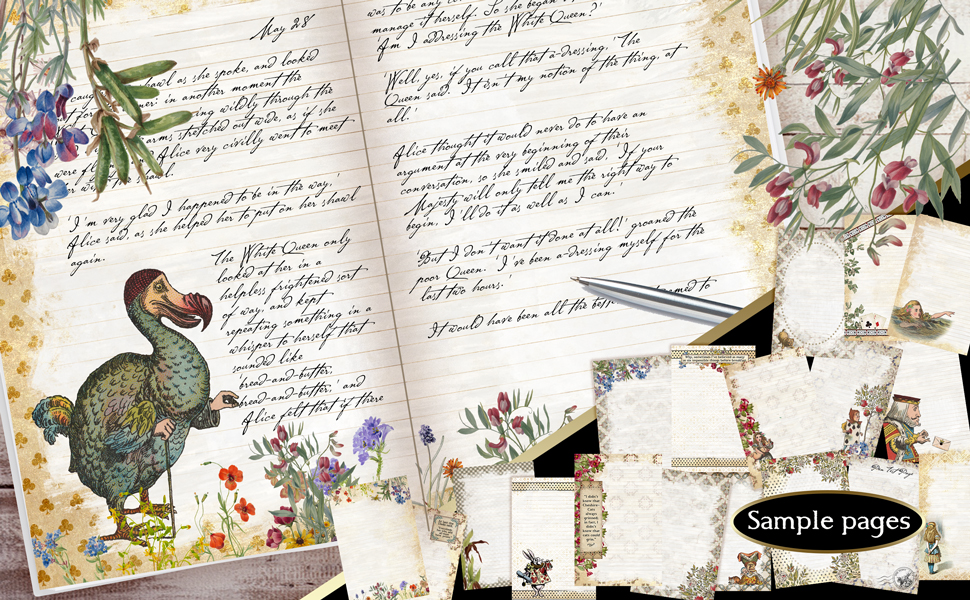 May 28
shawl as she spoke, and looked
in another moment the
wildly through the
arms stretched out wide, as if she
Alice very civilly went to meet
shawl.
'I'm very glad I happened to be in the way,'
Alice said, as she helped her to put on her shawl
again.
The White Queen only
looked at her in a
helpless frightened sort
of way, and kept
repeating something in a
whisper to herself that
sounded like
'bread-and-butter,
bread-and-butter,' and
Alice felt that if there
was to be any
manage it herself. So she began
'Am I addressing the White Queen?'
'Well, yes, if you call that a-dressing,' The
Queen said. 'It isn't my notion of the thing, at
all.'
Alice thought it would never do to have an
argument at the very beginning of their
conversation, so she smiled and said, 'If your
Majesty will only tell me the right way to
begin, I'll do it as well as I can.'
'But I don't want it done at all!' groaned the
poor Queen. 'I've been a-dressing myself for the
last two hours.'
It would have been all the better to
Sample pages